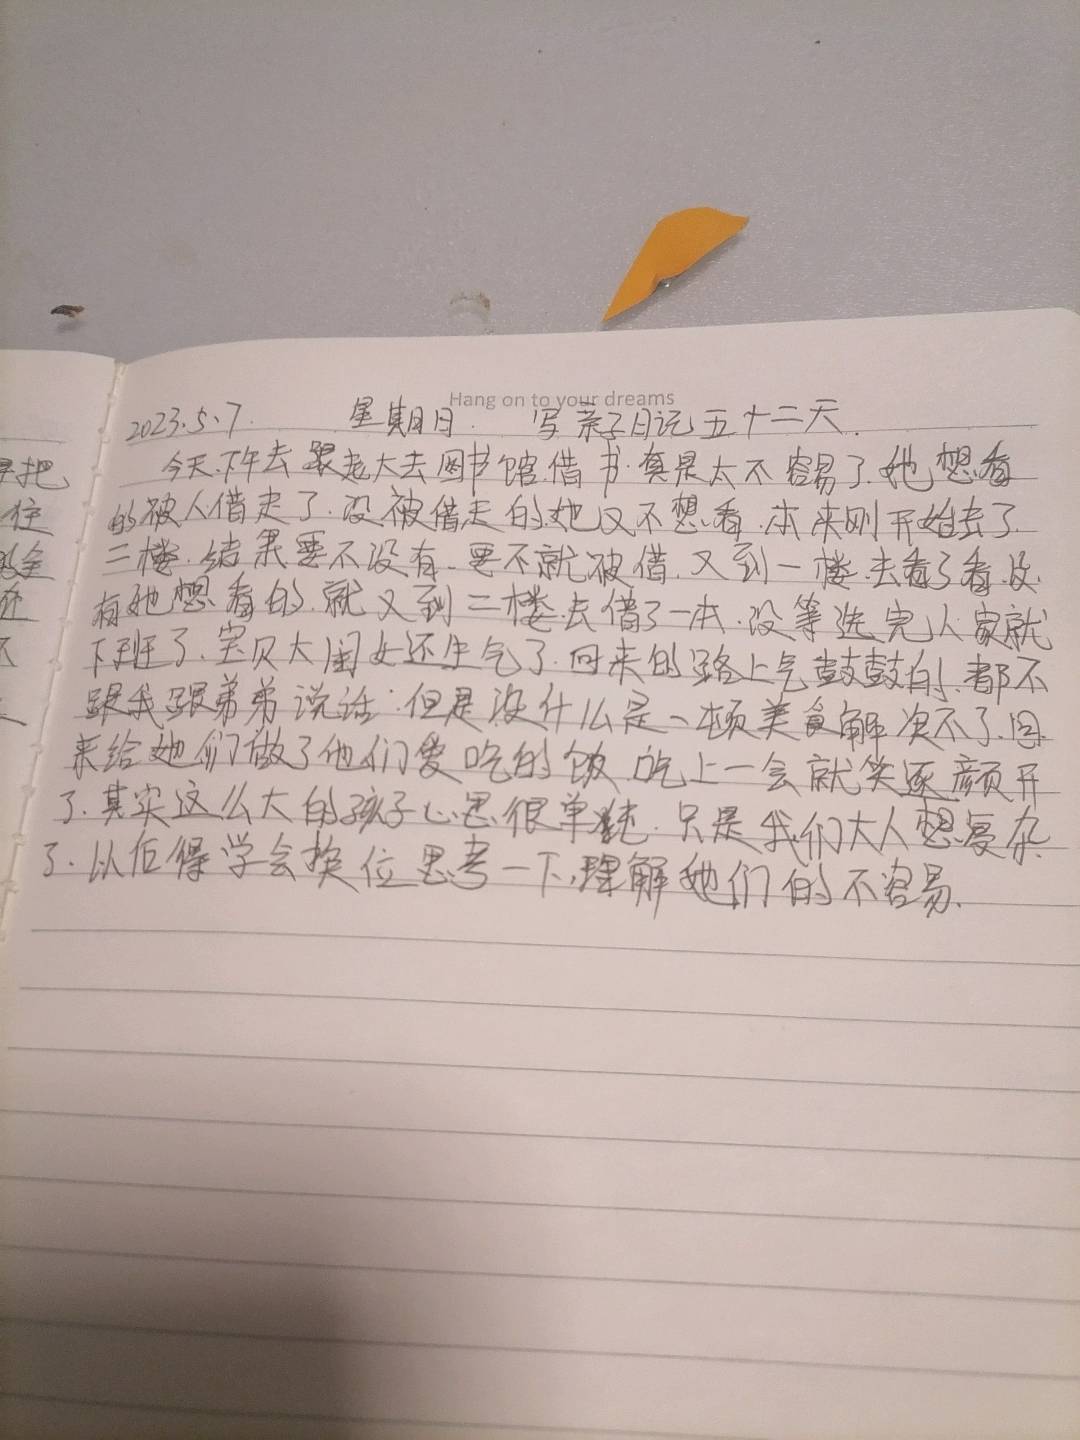 Hang on to your dreams
2023.5.7. 星期日. 写亲子日记五十二天.
今天.下午去跟老大去图书馆.借书.真是太不容易了.她想看
的被人借走了.没被借走的她又不想看.本来刚开始去了
三楼.结果要不没有.要不就被借.又到一楼.去看了看.没
有她想看的.就又到二楼去借了一本.没等选完人家就
下班了.宝贝大闺女还生气了.回来的路上气鼓鼓的.都不
跟我跟弟弟说话.但是没什么是一顿美食解决不了.回
来给她们做了他们爱吃的饭.吃上一会就笑逐颜开
了.其实这么大的孩子心思很单纯.只是我们大人想复杂
了.以后得学会换位思考一下,理解她们的不容易.
早把
住
还
不